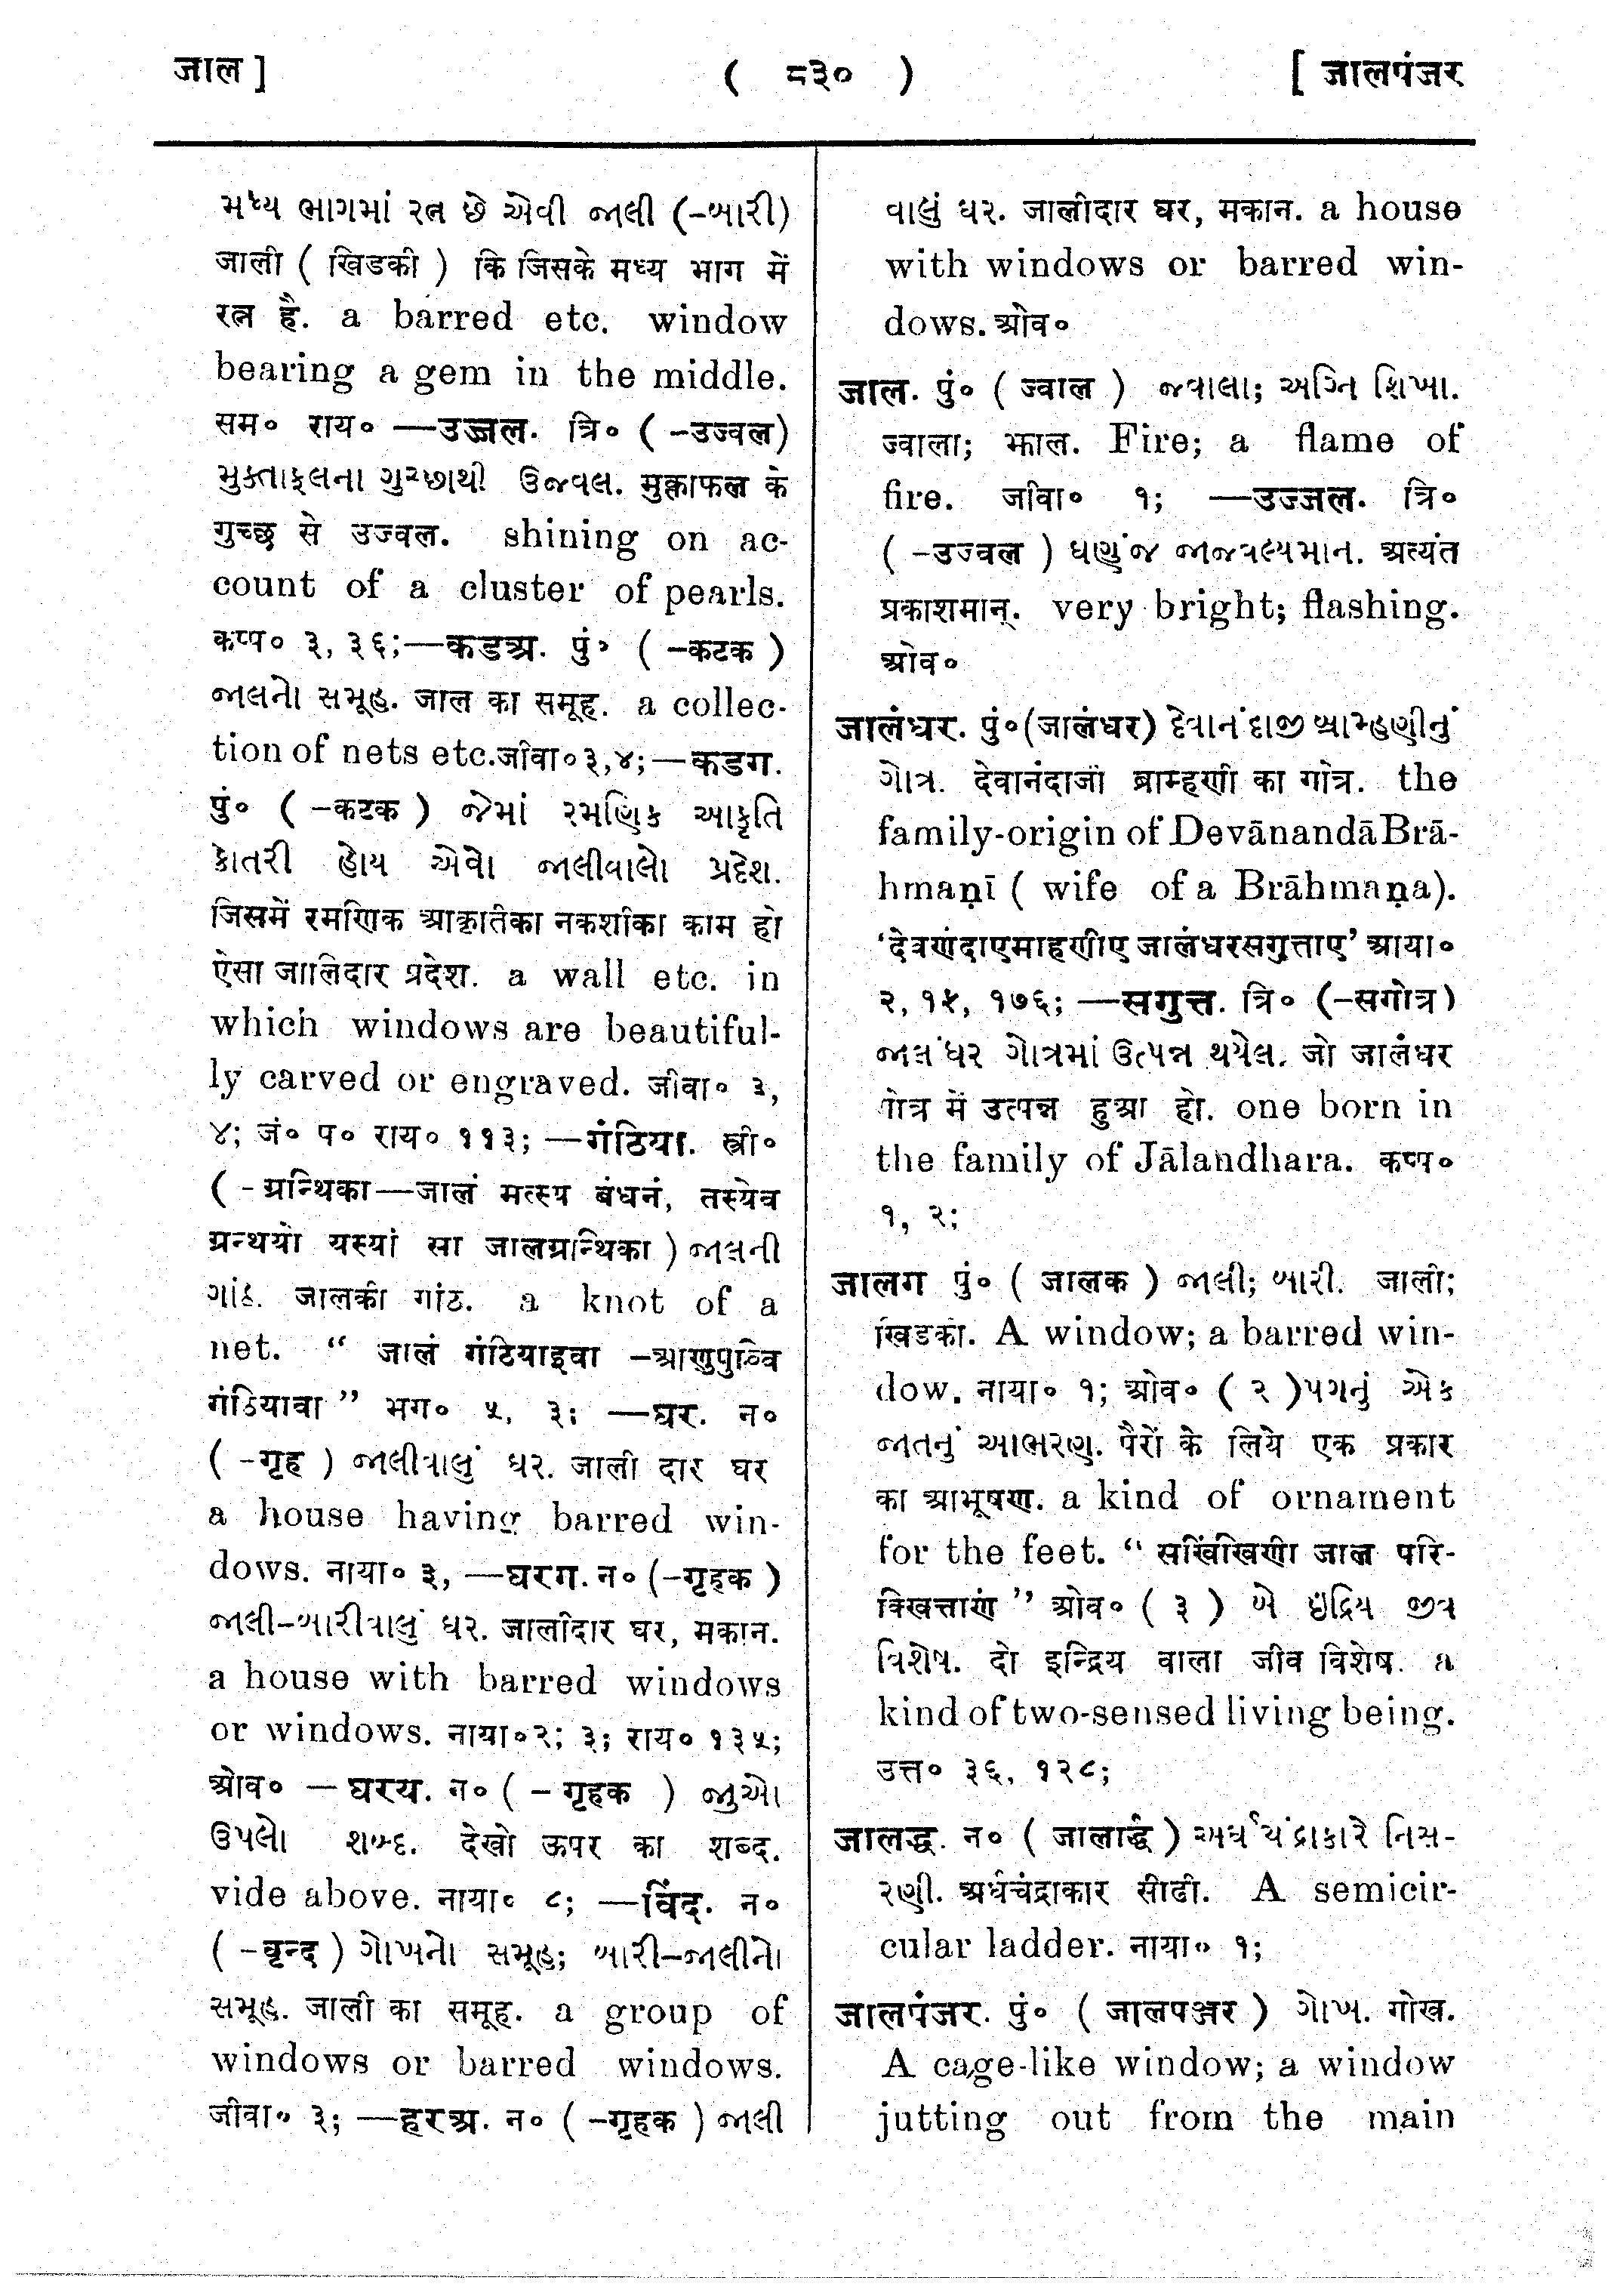 जाल ]
( ८३० )
[ जालपंजर
મધ્ય ભાગમાં રત્ન છે એવી જાલી (-બારી)
जाली ( खिडकी ) कि जिसके मध्य भाग में
रत्न है. a barred etc. window
bearing a gem in the middle.
सम० राय० —उज्जल. त्रि० ( -उज्वल)
મુક્તાફલના ગુચ્છાથી ઉજવલ. मुक्ताफल के
गुच्छ से उज्वल. shining on ac-
count of a cluster of pearls.
कप्प० ३, ३६;—कडअ. पुं० ( -कटक )
જાલનો સમૂહ. जाल का समूह. a collec-
tion of nets etc.जीवा०३,४;—कडग.
पुं० ( -कटक ) જેમાં રમણિક આકૃતિ
કોતરી હોય એવો જાલીવાલો પ્રદેશ.
जिसमें रमणिक आकृतिका नकशीका काम हो
ऐसा जालिदार प्रदेश. a wall etc. in
which windows are beautiful-
ly carved or engraved. जीवा० ३,
४; जं० प० राय० ११३; —गंठिया. स्त्री०
( -ग्रन्थिका—जालं मत्स्य बंधनं, तस्येव
ग्रन्थयो यस्यां सा जालग्रन्थिका ) જાલની
ગાંઠ. जालकी गांठ. a knot of a
net. “ जालं गंठियाइवा -आणुपुव्वि
गंठियावा ” भग० ५, ३; —घर. न०
( -गृह ) જાલીવાલું ધર. जाली दार घर
a house having barred win-
dows. नाया० ३, —घरग. न० (-गृहक )
જાલી-બારીવાલું ધર. जालीदार घर, मकान.
a house with barred windows
or windows. नाया०२; ३; राय० १३५;
ओव० — घरय. न० ( - गृहक ) જુઓ
ઉપલો શબ્દ. देखो ऊपर का शब्द.
vide above. नाया० ८; —विंद. न०
( -वृन्द ) ગોખનો સમૂહ; બારી-જાલીનો
સમૂહ. जाली का समूह. a group of
windows or barred windows.
जीवा० ३; —हरअ. न० ( -गृहक ) જાલી
વાલું ધર. जालीदार घर, मकान. a house
with windows or barred win-
dows. ओव०
जाल. पुं० ( ज्वाल ) જવાલા; અગ્નિ શિખા.
ज्वाला; झाल. Fire; a flame of
fire. जीवा० १; —उज्जल. त्रि०
( -उज्वल ) ધણુંજ જાજવલ્યમાન. अत्यंत
प्रकाशमान्. very bright; flashing.
ओव०
जालंधर. पुं०(जालंधर) દેવાનંદાજી બ્રામ્હણીનું
ગોત્ર. देवानंदाजी ब्राम्हणी का गोत्र. the
family-origin of Devānandā Brā-
hmaṇī ( wife of a Brāhmaṇa).
‘देवाणंदाएमाहणीए जालंधरसगुत्ताए’ आया०
२, १५, १७६; —सगुत्त. त्रि० (-सगोत्र)
જાલંધર ગોત્રમાં ઉત્પન્ન થયેલ. जो जालंधर
गोत्र में उत्पन्न हुआ हो. one born in
the family of Jālandhara. कप्प०
१, २;
जालग पुं० ( जालक ) જાલી; બારી. जाली;
खिडकी. A window; a barred win-
dow. नाया० १; ओव० ( २ )પગનું એક
જાતનું આભરણ. पैरों के लिये एक प्रकार
का आभूषण. a kind of ornament
for the feet. “ सखिंखिणी जाल परि-
क्खित्ताणं ” ओव० ( ३ ) બે ઇંદ્રિય જીવ
વિશેષ. दो इन्द्रिय वाला जीव विशेष. a
kind of two-sensed living being.
उत्त० ३६, १२८;
जालद्ध. न० ( जालार्द्ध ) અર્ધચંદ્રાકારે નિસ-
રણી. अर्धचंद्राकार सीढी. A semicir-
cular ladder. नाया० १;
जालपंजर. पुं० ( जालपञ्जर ) ગોખ. गोख.
A cage-like window; a window
jutting out from the main